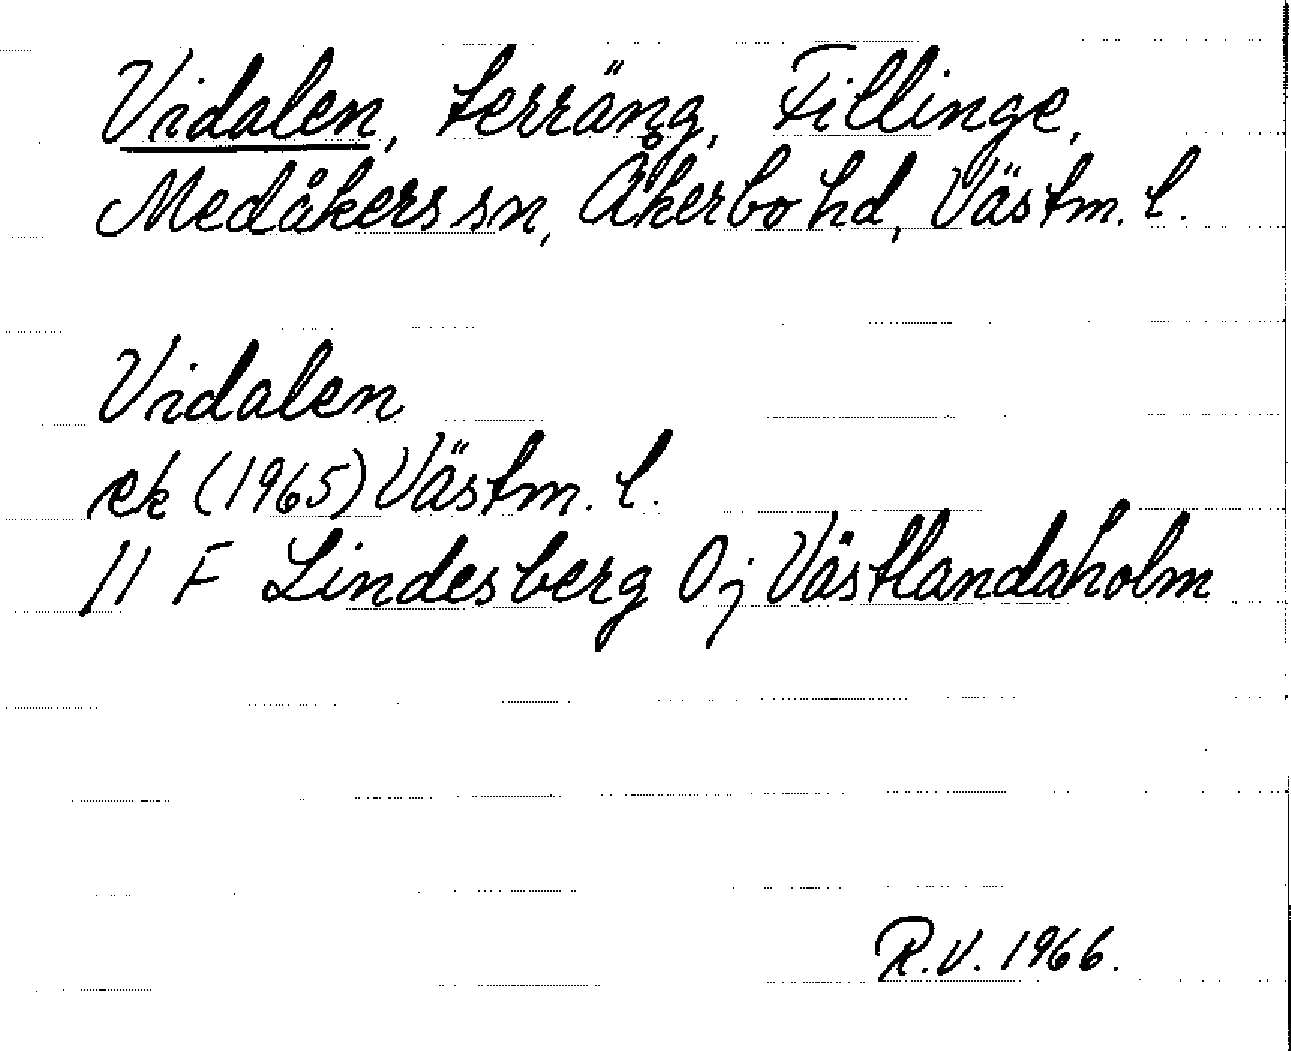 Vidalen, terräng, Fillinge,
Medåkers sn, Åkerbo hd, Västm. l.
Vidalen
ek (1965) Västm. l.
11 F Lindesberg Oj Västlandaholm
R.V. 1966.